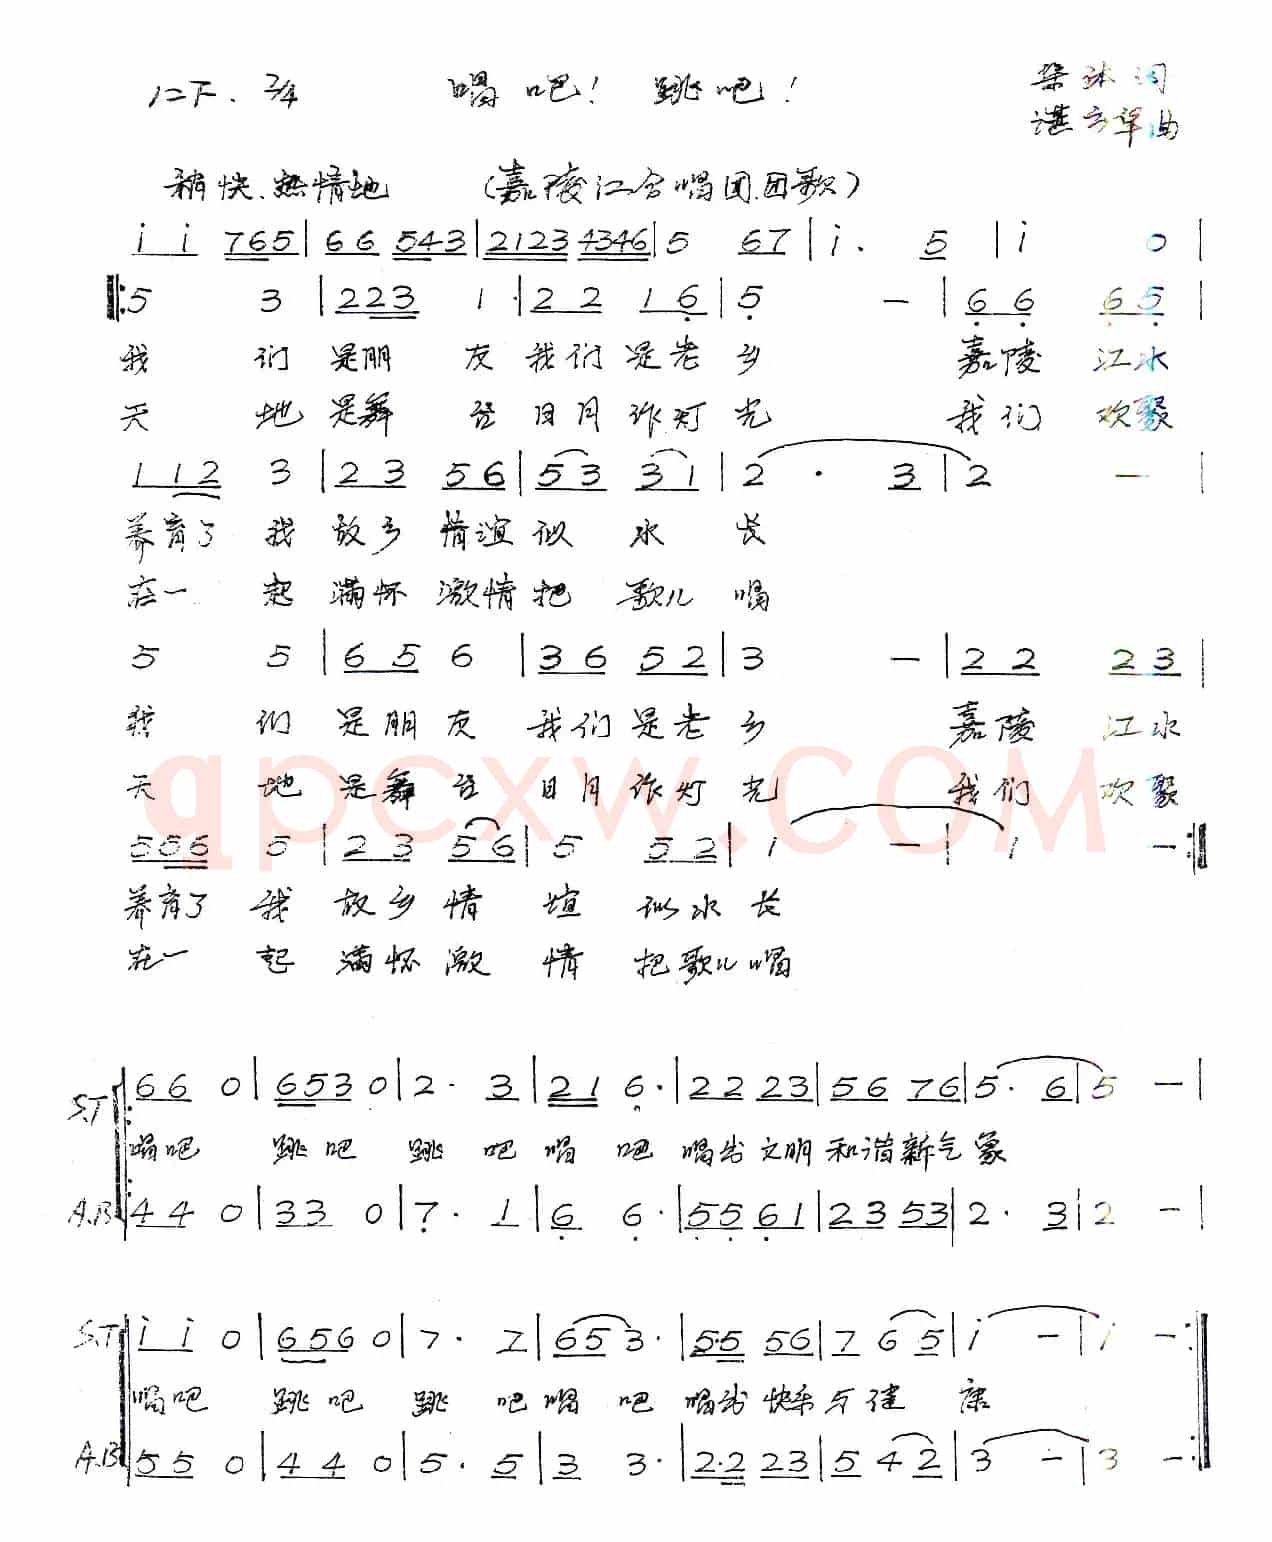 1=F. 2/4 唱吧! 跳吧! 词
曲
稍快、热情地 (嘉陵江合唱团.团歌)
i i 765 | 66 543 | 2123 4346 | 5 67 | i. 5 | i 0 |
5 3 | 223 1 | 22 16 | 5 — | 66 65 |
我们是朋友我们是老乡 嘉陵江水
天地是舞台日月作灯光 我们欢聚
112 3 | 23 56 | 53 31 | 2 · 3 | 2 — |
养育了我故乡情谊似水长
在一起满怀激情把歌儿唱
5 5 | 65 6 | 36 52 | 3 — | 22 23 |
我们是朋友我们是老乡 嘉陵江水
天地是舞台日月作灯光 我们欢聚
qpcxw.COM
556 5 | 23 56 | 5 52 | i — | i — :|
养育了我故乡情谊似水长
在一起满怀激情把歌儿唱
S.T 66 0 | 653 0 | 2· 3 | 21 6· | 22 23 | 56 76 | 5· 6 | 5 — |
唱吧 跳吧 跳吧唱吧 唱出文明和谐新气象
A.B 44 0 | 33 0 | 7· 1 | 6 6· | 55 61 | 23 53 | 2· 3 | 2 — |
S.T i i 0 | 656 0 | 7· 7 | 653· | 5·5 56 | 7 65 | i — | i — :|
唱吧 跳吧 跳吧唱吧 唱出快乐与健康
A.B 55 0 | 44 0 | 5· 5 | 3 3· | 2·2 23 | 5 42 | 3 — | 3 — :|